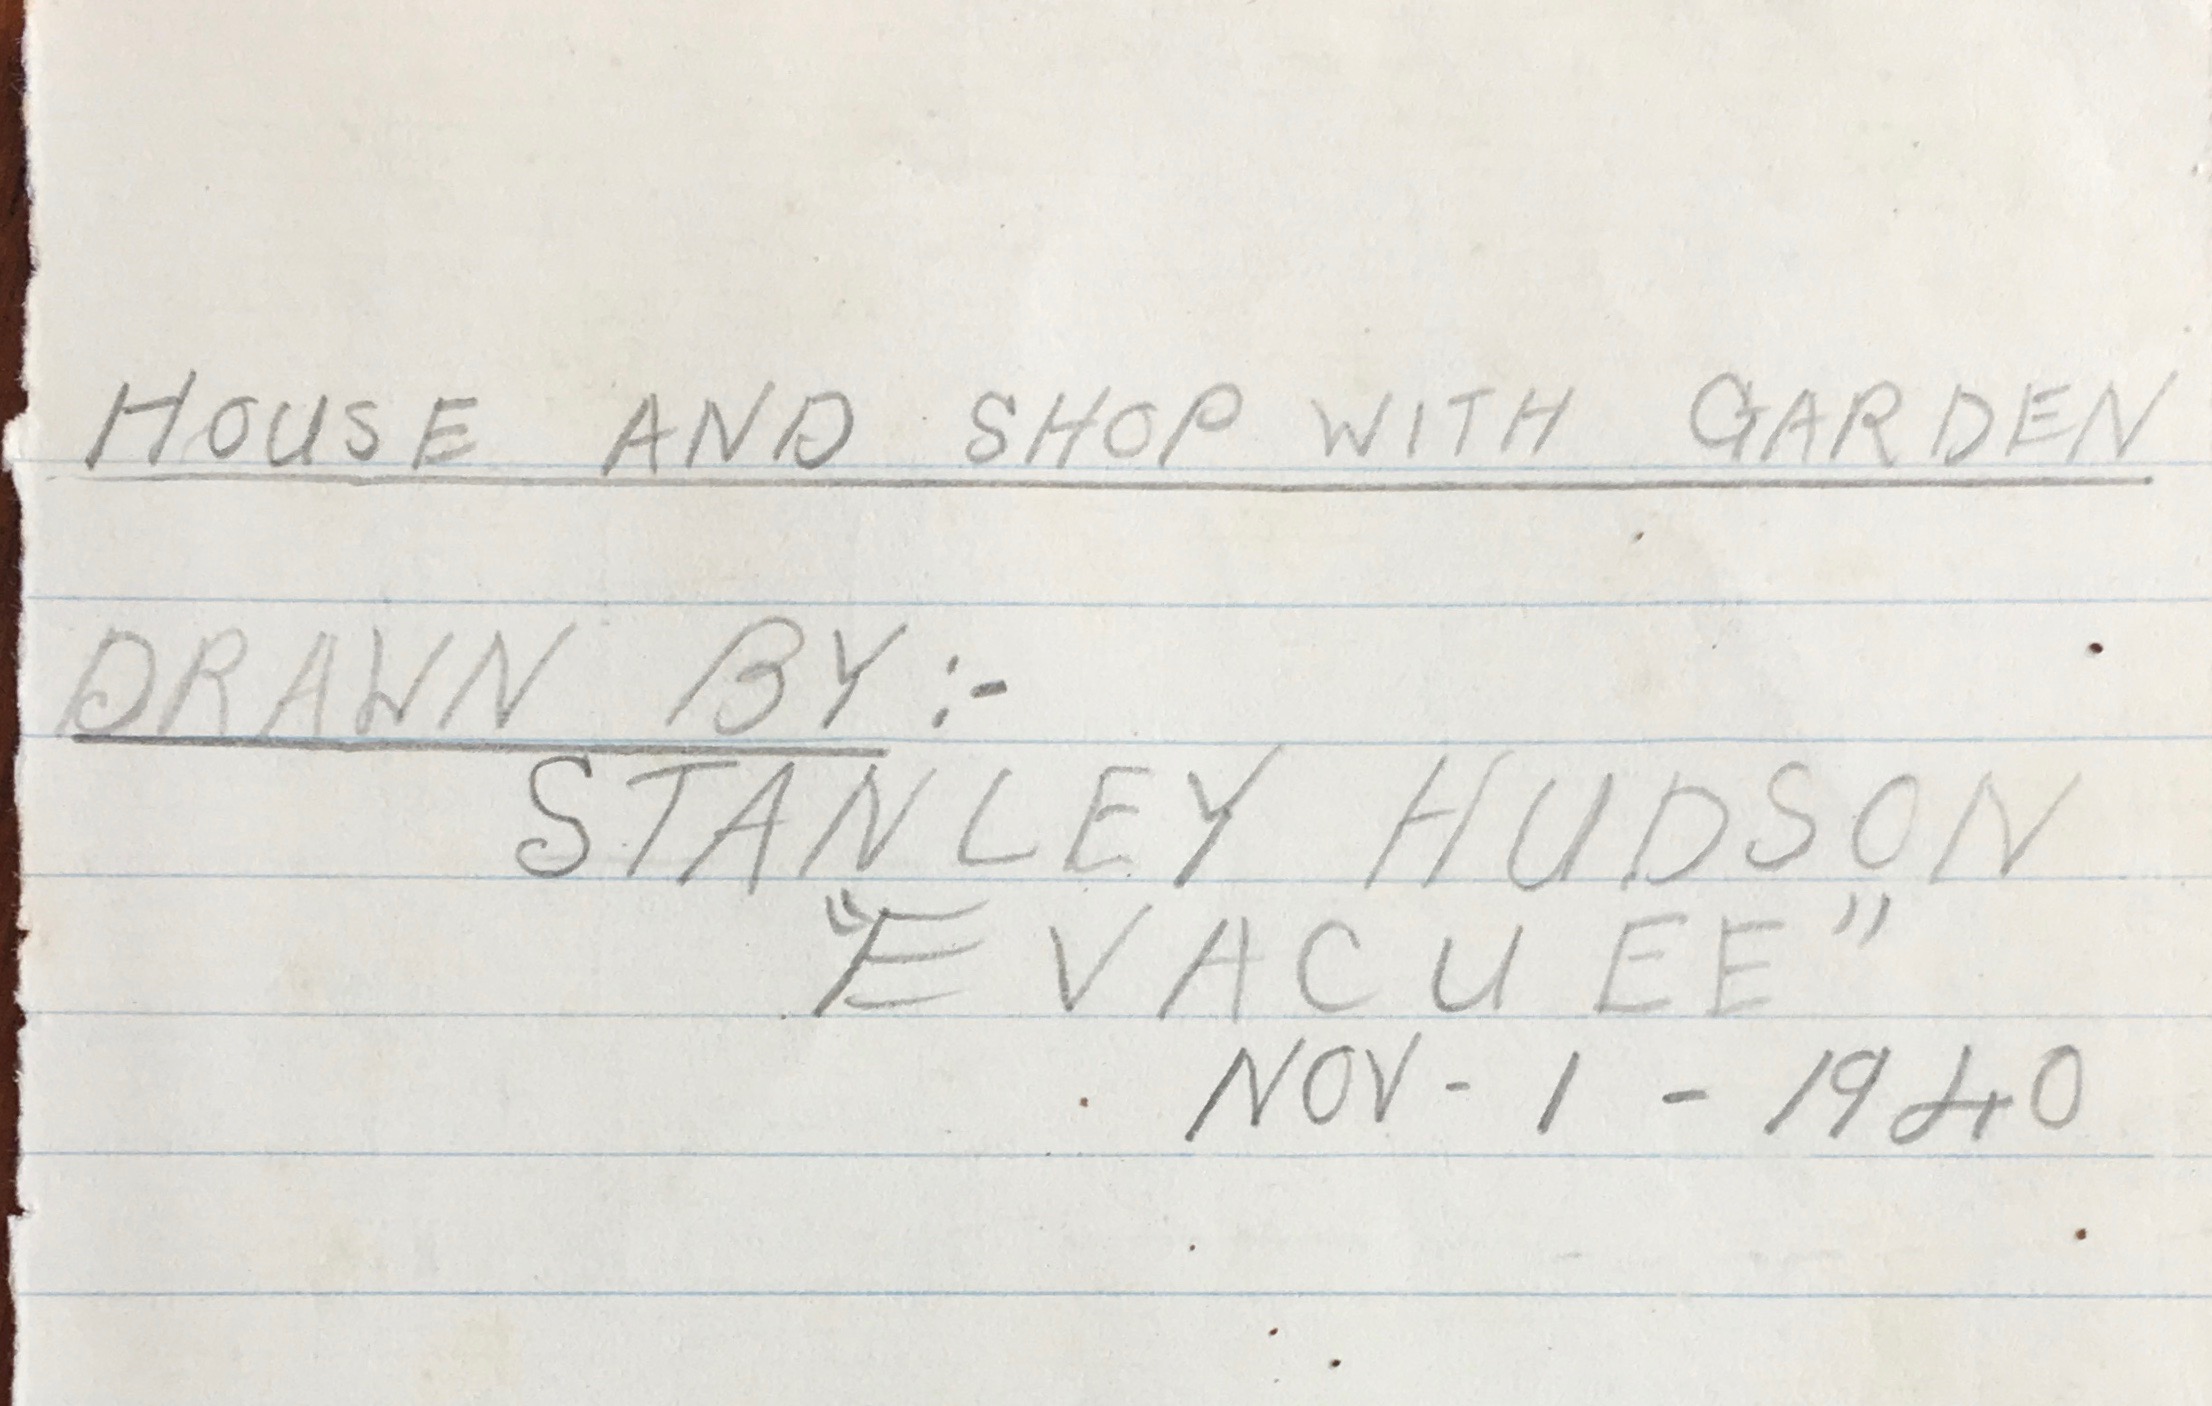 HOUSE AND SHOP WITH GARDEN
DRAWN BY:-
STANLEY HUDSON
"EVACUEE"
NOV - 1 - 1940